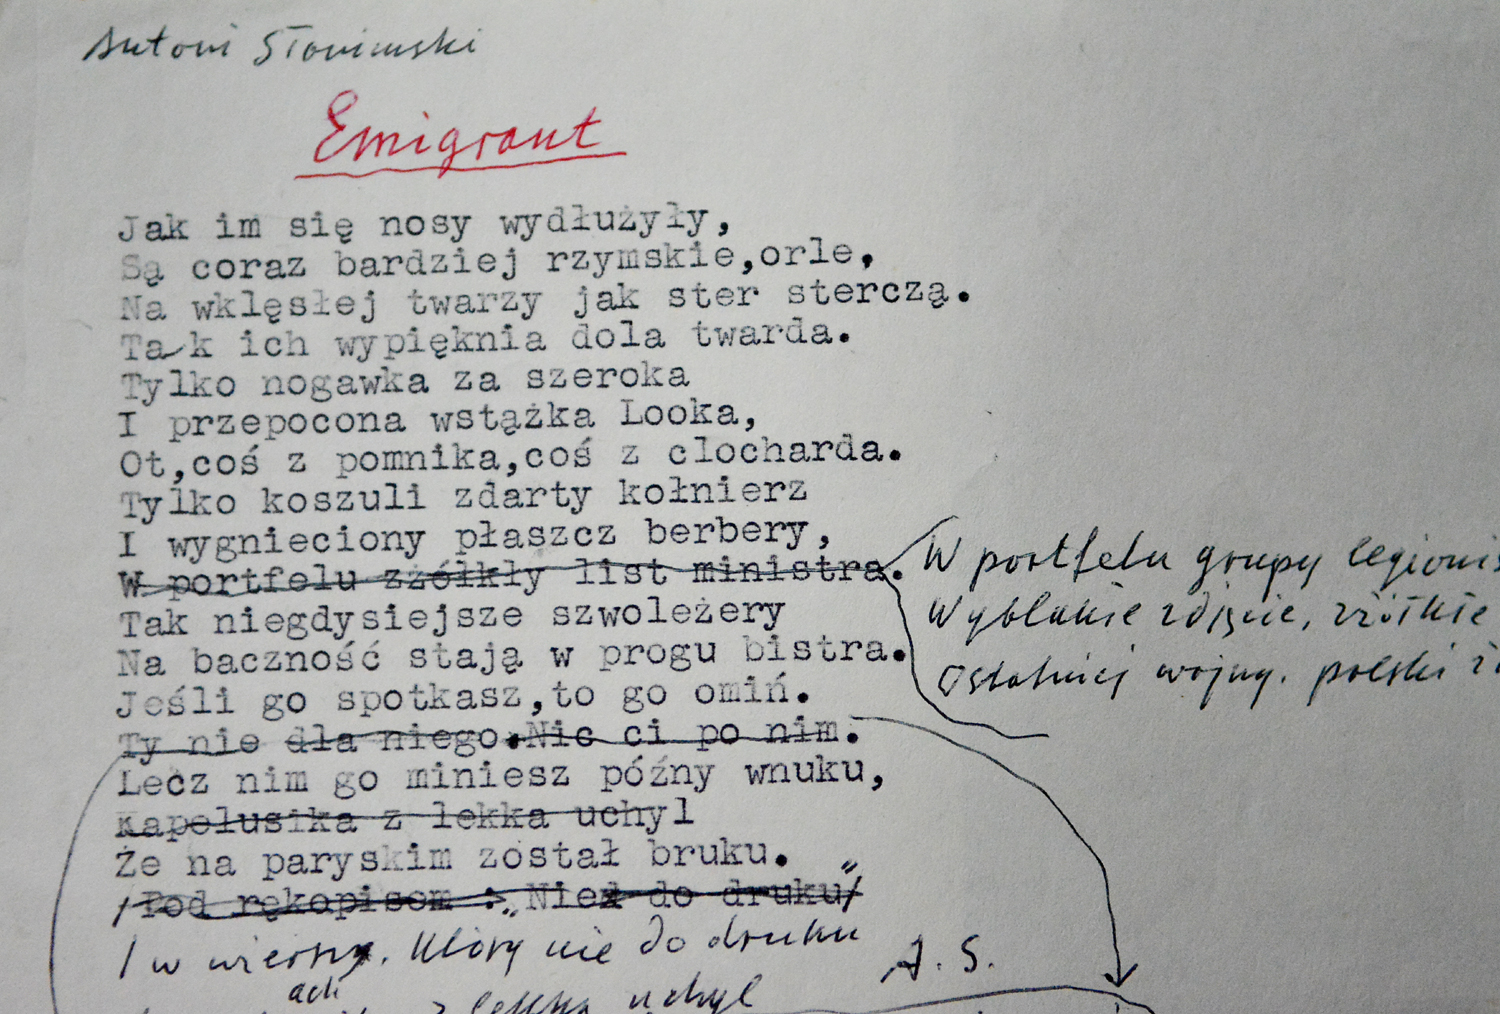 Antoni Słonimski
Emigrant
Jak im się nosy wydłużyły,
Są coraz bardziej rzymskie,orle,
Na wklęsłej twarzy jak ster sterczą.
Tak ich wypięknia dola twarda.
Tylko nogawka za szeroka
I przepocona wstążka Looka,
Ot,coś z pomnika,coś z clocharda.
Tylko koszuli zdarty kołnierz
I wygnieciony płaszcz berbery,
W portfelu zżółkły list ministra.
W portfelu grupy legionis
Wyblakłe zdjęcie, zżółkłe
Ostatniej wojny. polski
Tak niegdysiejsze szwoleżery
Na baczność stają w progu bistra.
Jeśli go spotkasz,to go omiń.
Ty nie dla niego.Nic ci po nim.
Lecz nim go miniesz późny wnuku,
Kapelusika z lekka uchyl
Że na paryskim został bruku.
/Pod rękopisem :„Nie do druku"/
I w wierszy, który nie do druku
A. S.
ach
z lekka uchyl